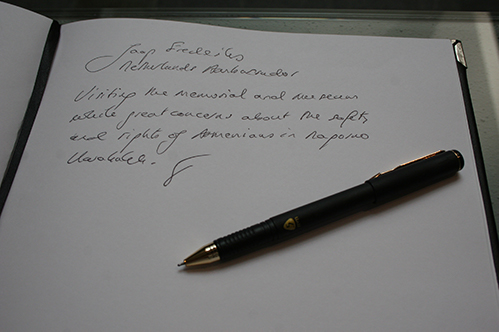 Jaap Frederiks
Netherlands Ambassador
Visiting the memorial and museum
while great concerns about the safety
and rights of Armenians in Nagorno
Karabakh.